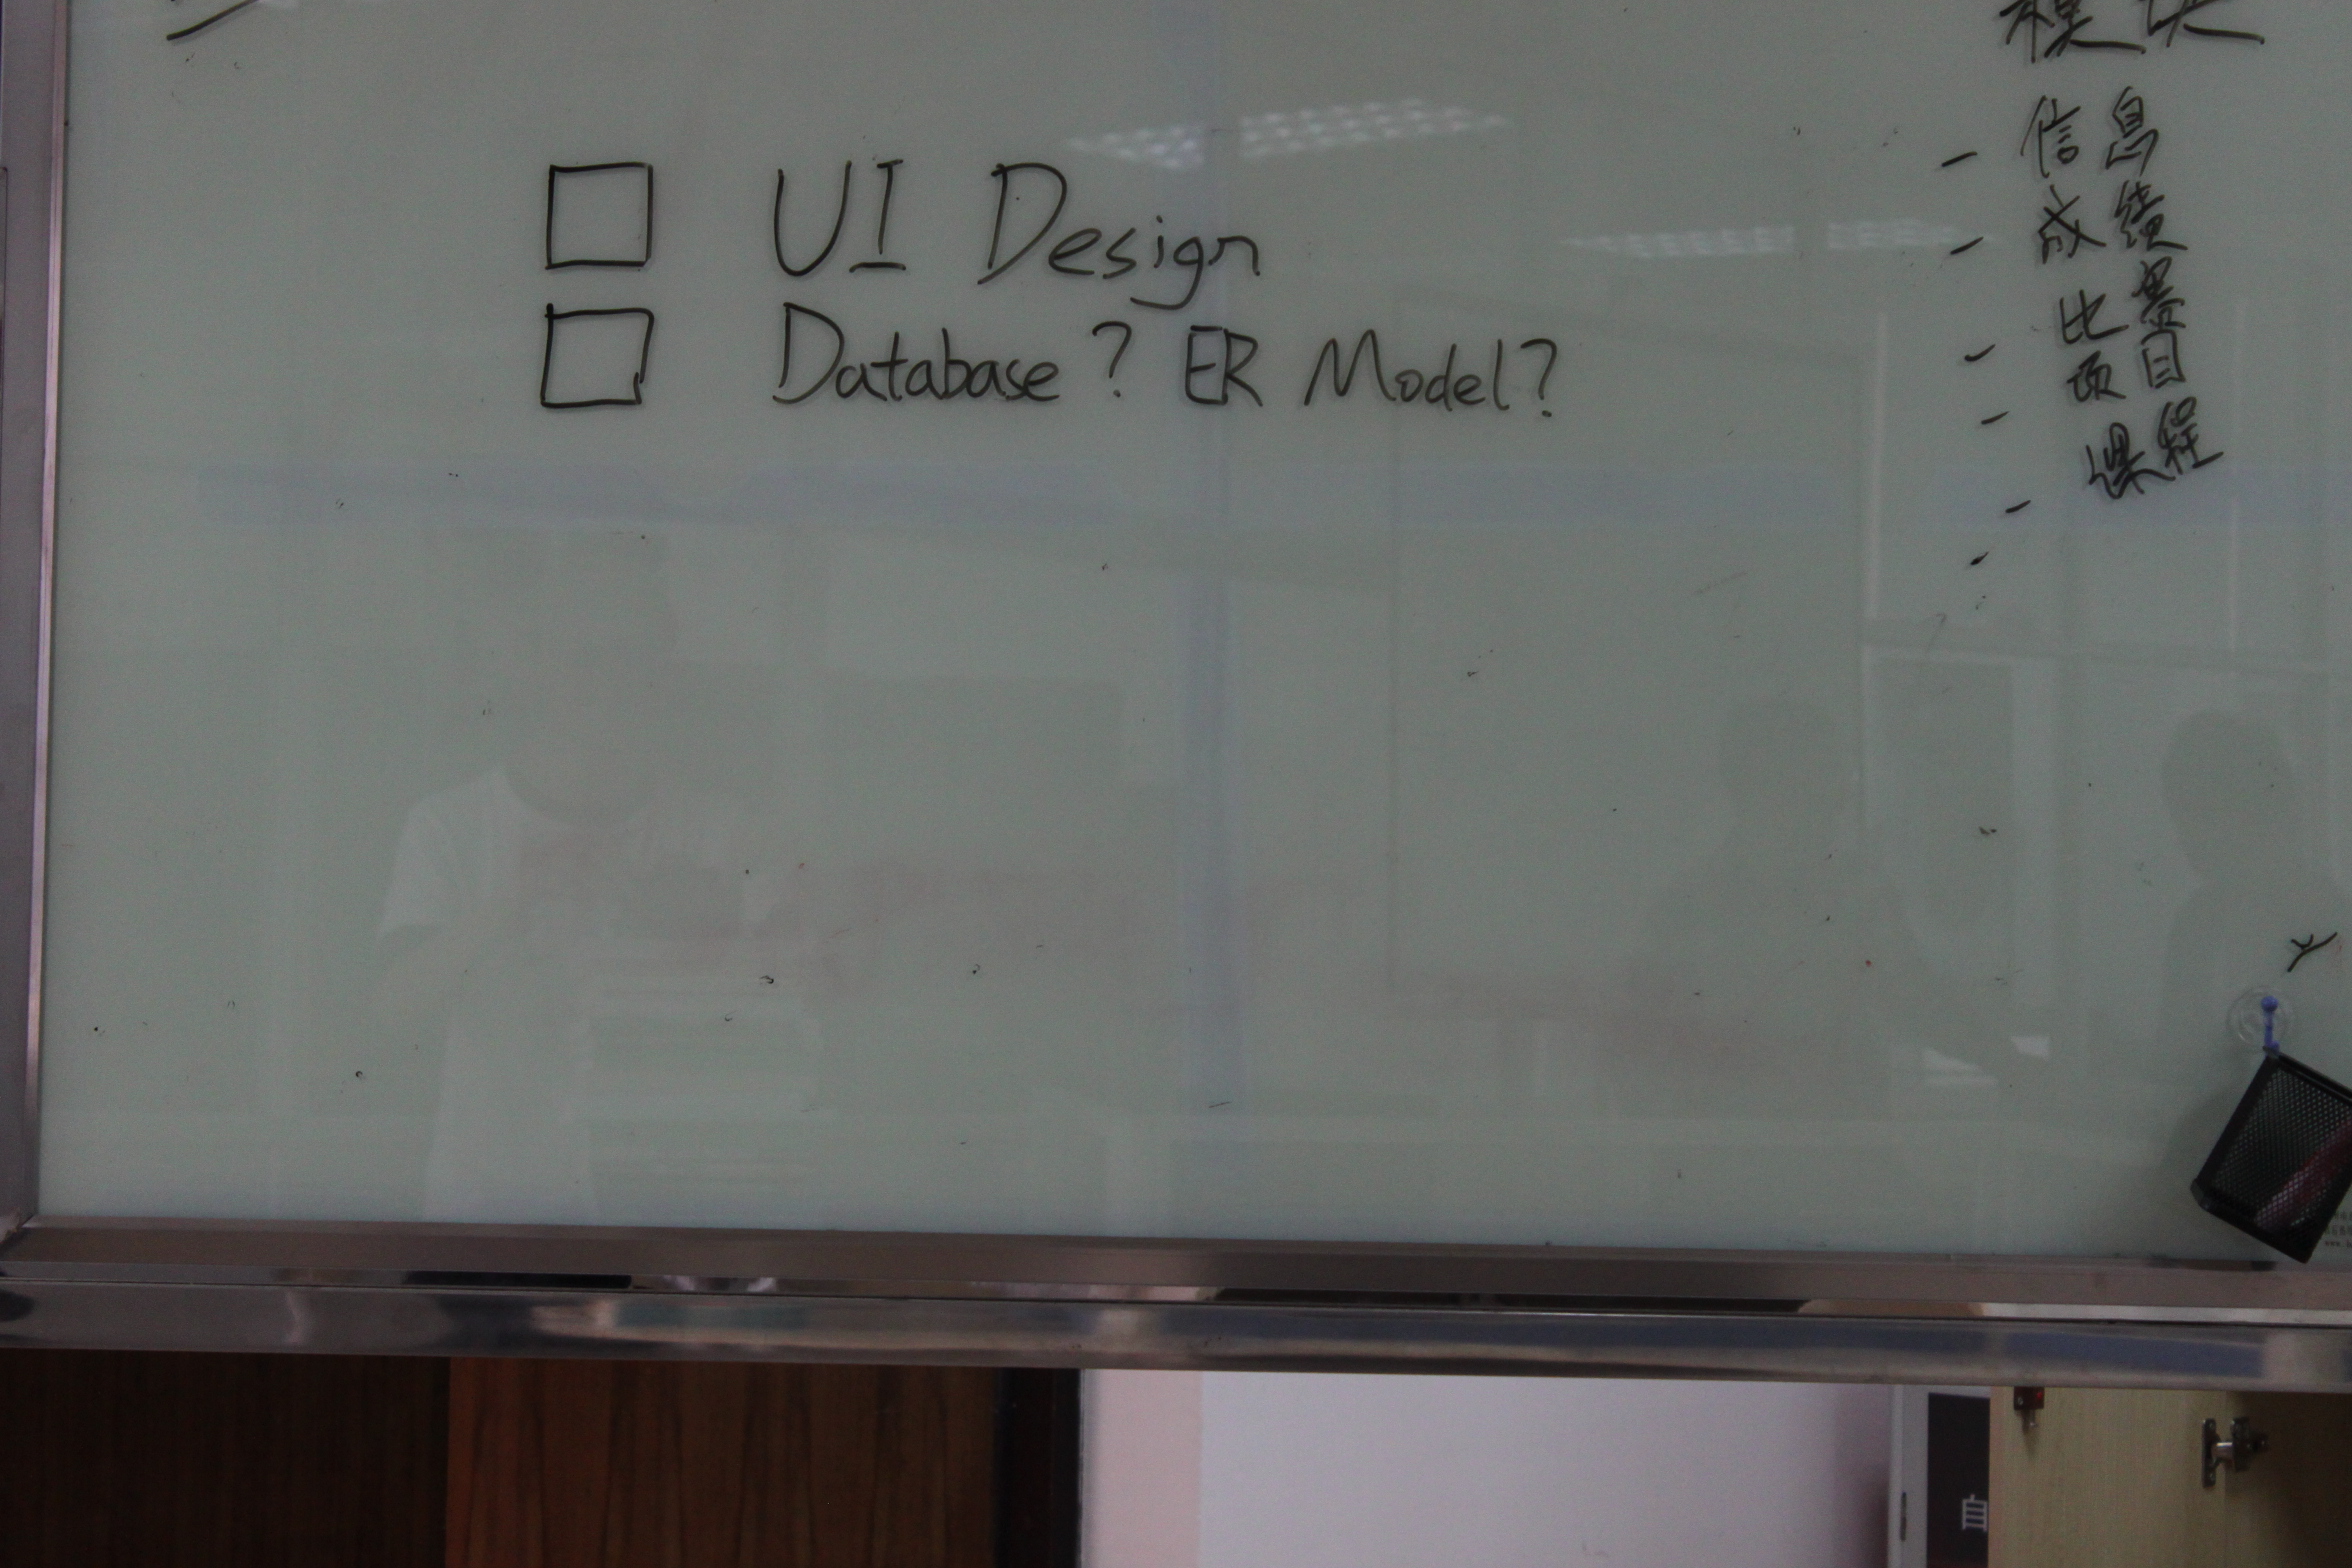 模块
□ UI Design
□ Database? ER Model?
- 信息
- 成绩
- 比赛
- 项目
- 课程
自